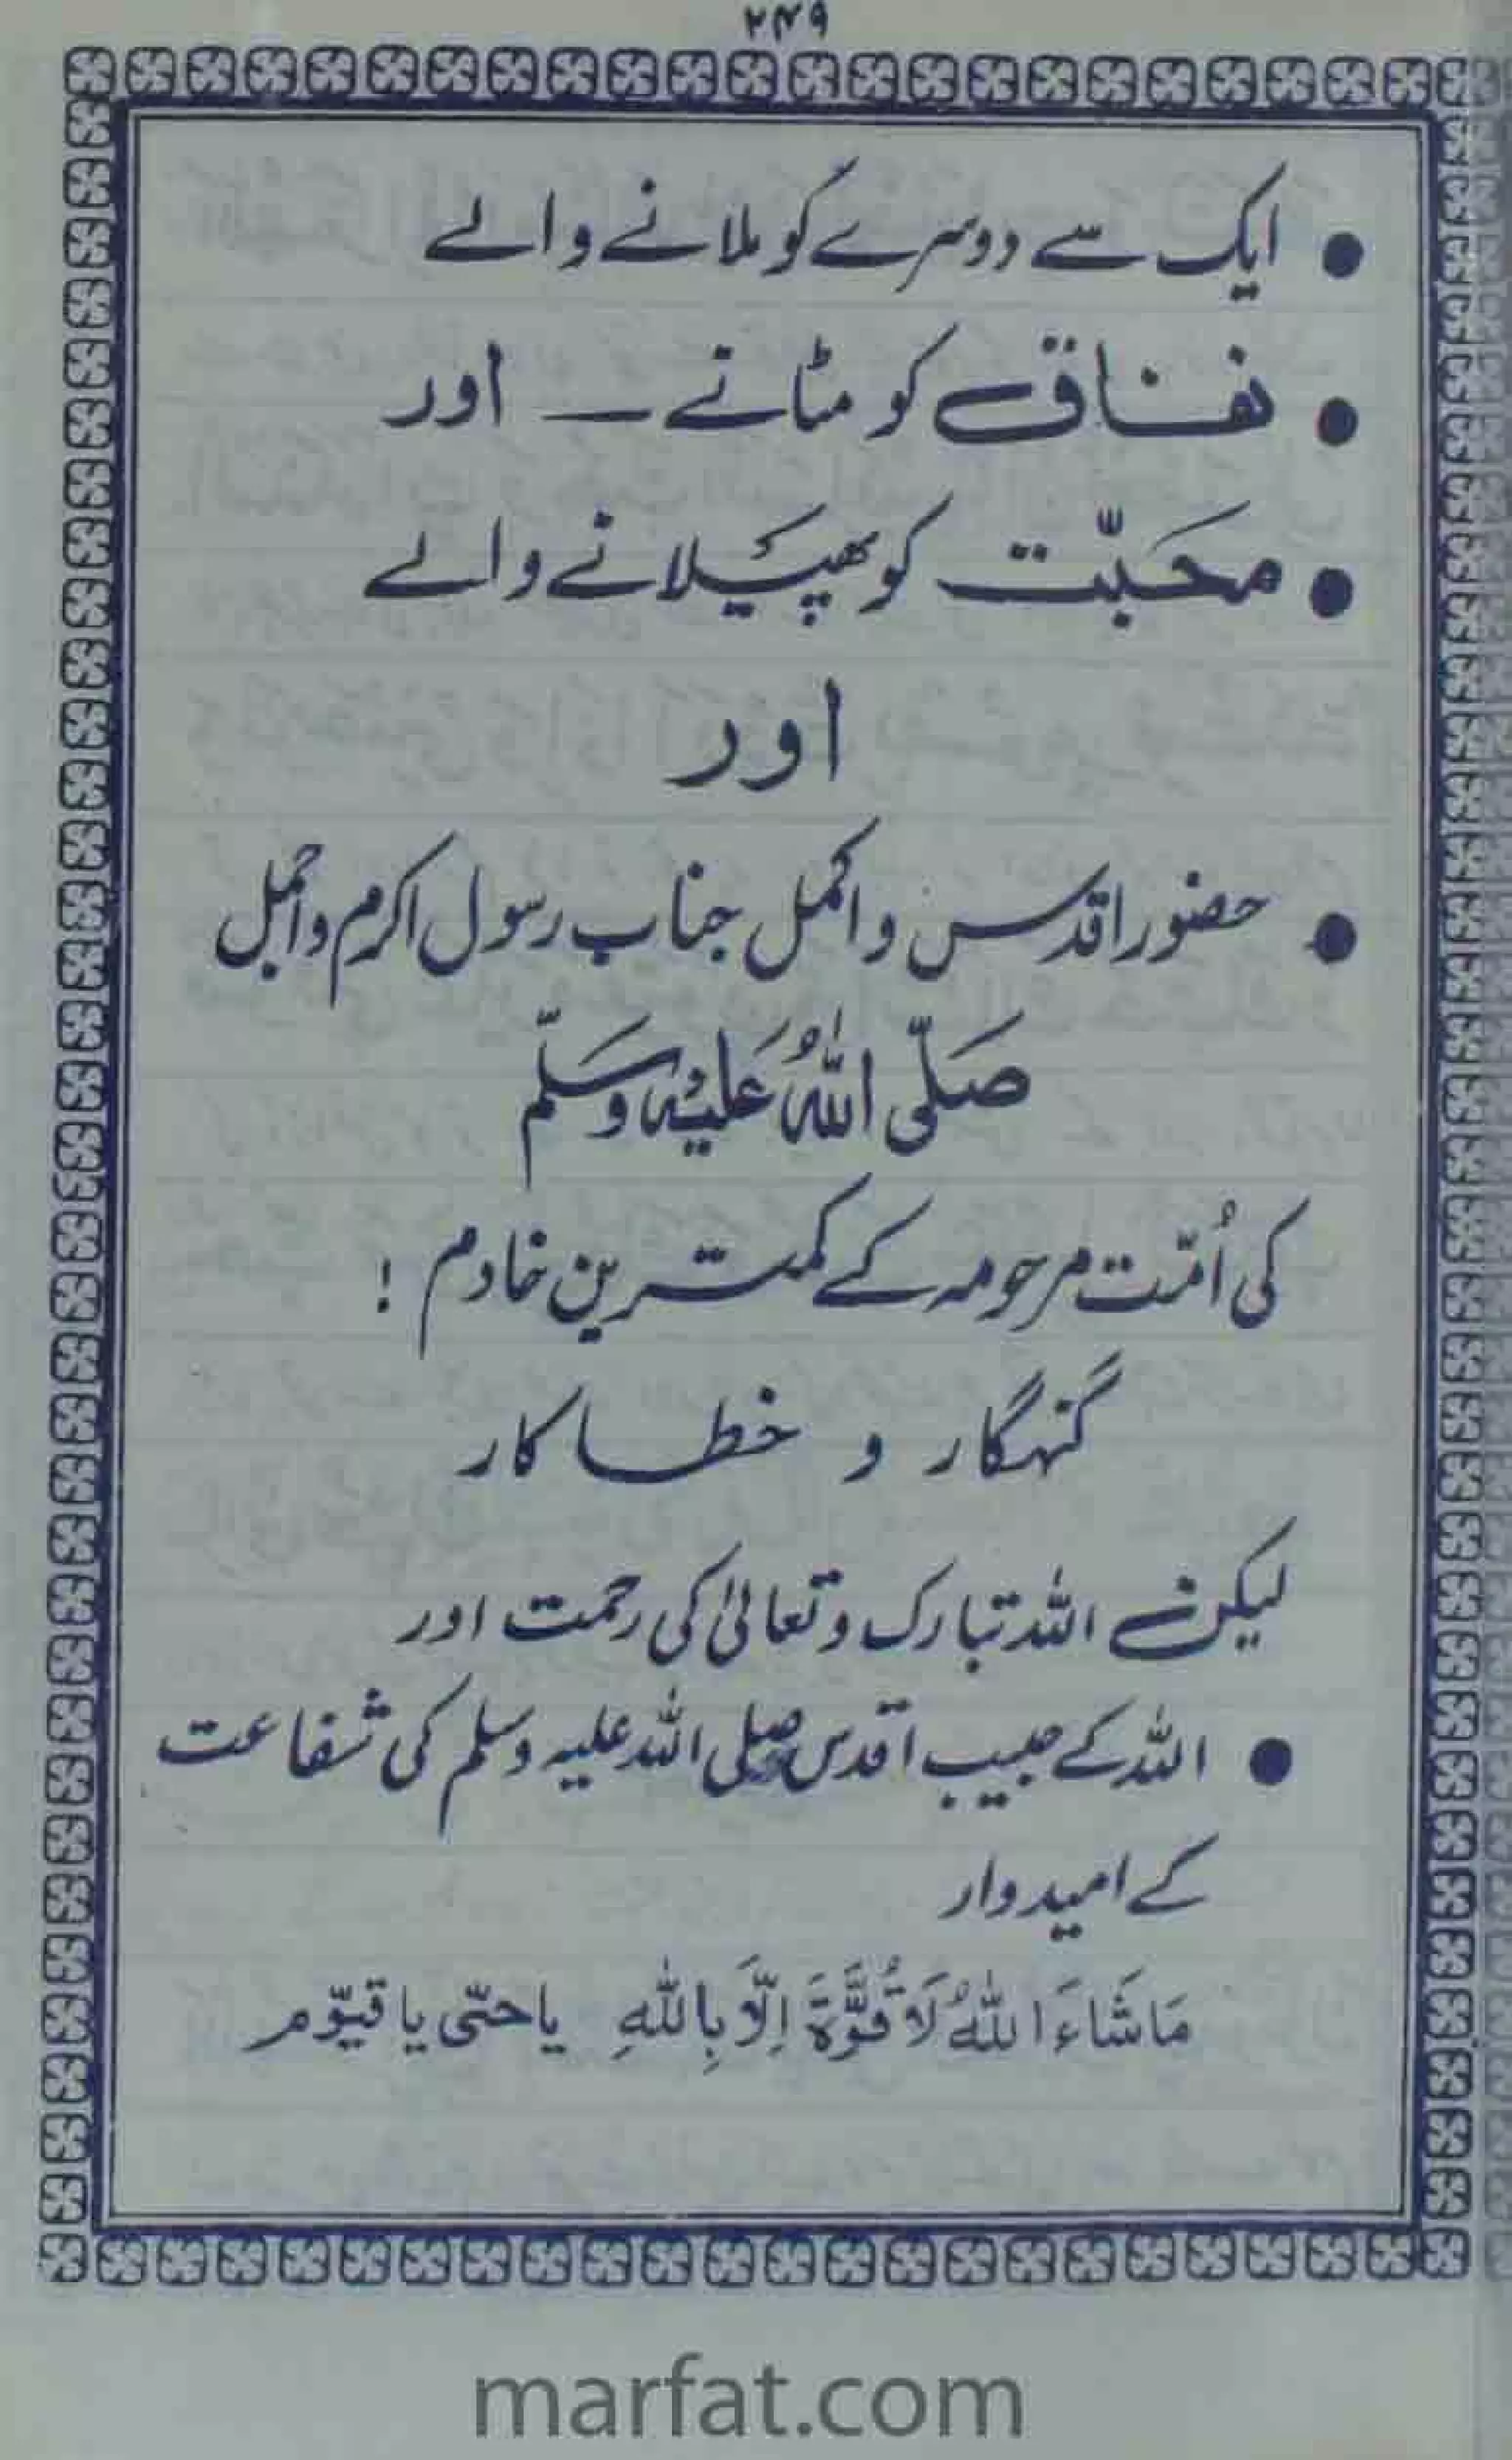 ۲۴۹
● ایک سے دوسرے کو ملانے والے
● نفاق کو مٹاتے ــ اور
● محبّت کو پھیلانے والے
اور
● حضور اقدس و اکمل جناب رسول اکرم و اجمل
صَلَّی اللّٰهُ عَلَیْهِ وَسَلَّم
کی اُمّت مرحومہ کے کمترین خادم !
گنہگار و خطا کار
لیکن اللہ تبارک وتعالیٰ کی رحمت اور
● اللہ کے حبیب اقدس صلی اللہ علیہ وسلم کی شفاعت
کے امیدوار
مَاشَاءَ اللّٰهُ لَا قُوَّةَ اِلَّا بِاللّٰهِ یا حیّ یا قیّوم
marfat.com